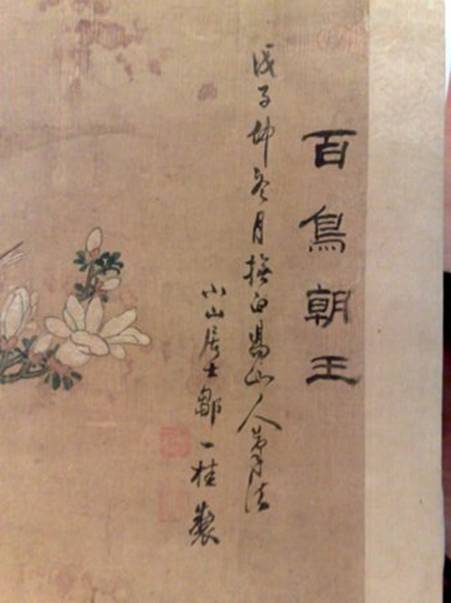 百鳥朝王
戊子仲冬月橅白昜山人筆法
小山居士鄒一桂製